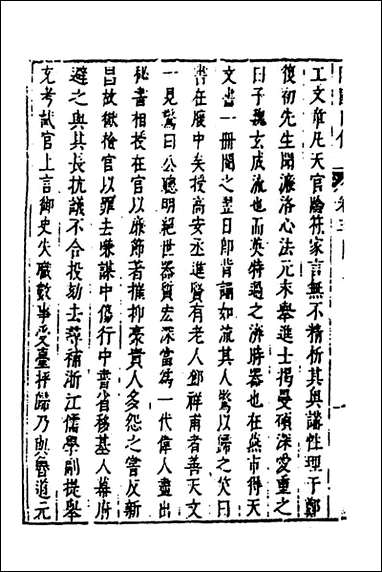 工文章凡天官陰符家言無不精析其奧講性理于鄭
復初先生聞濂洛心法元末舉進士揭曼碩深愛重之
曰子魏玄成流也而英特過之濟時器也在燕市得天
文書一冊閱之翌日即背誦如流其人驚以歸之笑曰
書在腹中矣授高安丞進賢有老人鄧祥甫者善天文
一見驚曰公聰明絕世器質宏深當爲一代偉人盡出
秘書相授在官以廉節著摧抑豪貴人多怨之嘗反新
昌故獄檢官以罪去謀中傷行中書省移基入幕府
避之與其長抗議不合投劾去尋補浙江儒學副提舉
充考試官上言御史失職數事受臺抨歸乃與魯道元